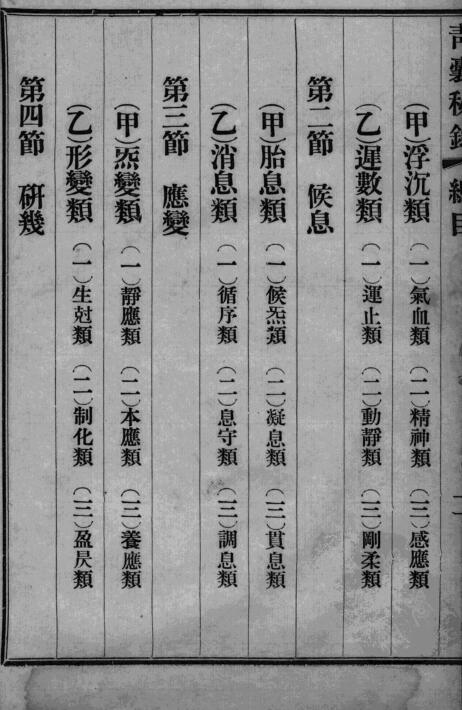 青囊秘錄 總目
(甲)浮沉類 (一)氣血類 (二)精神類 (三)感應類
(乙)遲數類 (一)運止類 (二)動靜類 (三)剛柔類
第二節 候息
(甲)胎息類 (一)候炁類 (二)凝息類 (三)貫息類
(乙)消息類 (一)循序類 (二)息守類 (三)調息類
第三節 應變
(甲)炁變類 (一)靜應類 (二)本應類 (三)養應類
(乙)形變類 (一)生尅類 (二)制化類 (三)盈昃類
第四節 研幾